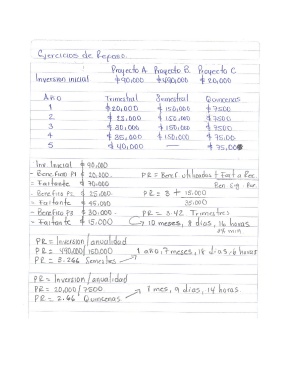 Ejercicios de Repaso.
Proyecto A Proyecto B. Proyecto C
Inversión inicial $90,000 $490,000 $20,000
Año Trimestral Semestral Quincenas
1 $20,000 $150,000 $7500
2. $25,000 $150,000 $7500
3. $30,000 $150,000 $7500
4 $35,000 $150,000 $75,00
5 $40,000 $75,00
Inv. Inicial $90,000
- Beneficio P1 $20,000
= Faltante $70,000
- Benefico P2 $25,000
= Faltante $45,000
- Benefico P3 $30,000
= Faltante $15,000
PR = Benef utilizados + Falt a Rec
Ben Sig Per.
PR = 3 + 15,000
35,000
PR = 3.42 Trimestres
10 meses, 8 dias, 16 horas
PR = Inversion / anualidad
PR = 490,000/150,000 1 año, 7 meses, 18 dias, 6 horas
PR = 3.266 Semestres
PR = Inversion / anualidad
PR = 20,000 / 7500 1 mes, 9 dias, 14 horas
PR = 2.66 Quincenas